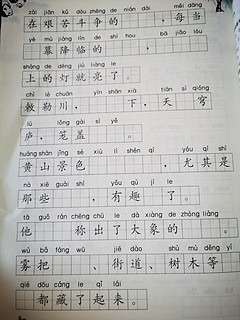 zài jiān kǔ dòu zhēng de nián dài měi dāng
在艰苦斗争的 ，每当
yè mù jiàng lín de shí hou bā jiǎo lóu
幕降临的 ，
shàng de dēng jiù liàng le
上的灯就亮了。
chì lè chuān yīn shān xià tiān sì qióng
敕勒川， ，下，天 穹
lú lǒng gài sì yě
庐，笼盖 。
huāng shān jǐng sè yóu qí shì
黄山景色 ，尤其是
nà xiē guài shí yǒu qù jí le
那些 ，有趣 了。
tā guǒ rán chēng chū le dà xiàng de zhòng liàng
他 称出了大象的 。
wù bǎ fáng wū jiē dào shù mù děng yí
雾把 、街道、树木等
qiè dōu cáng le qǐ lái
都藏了起来。